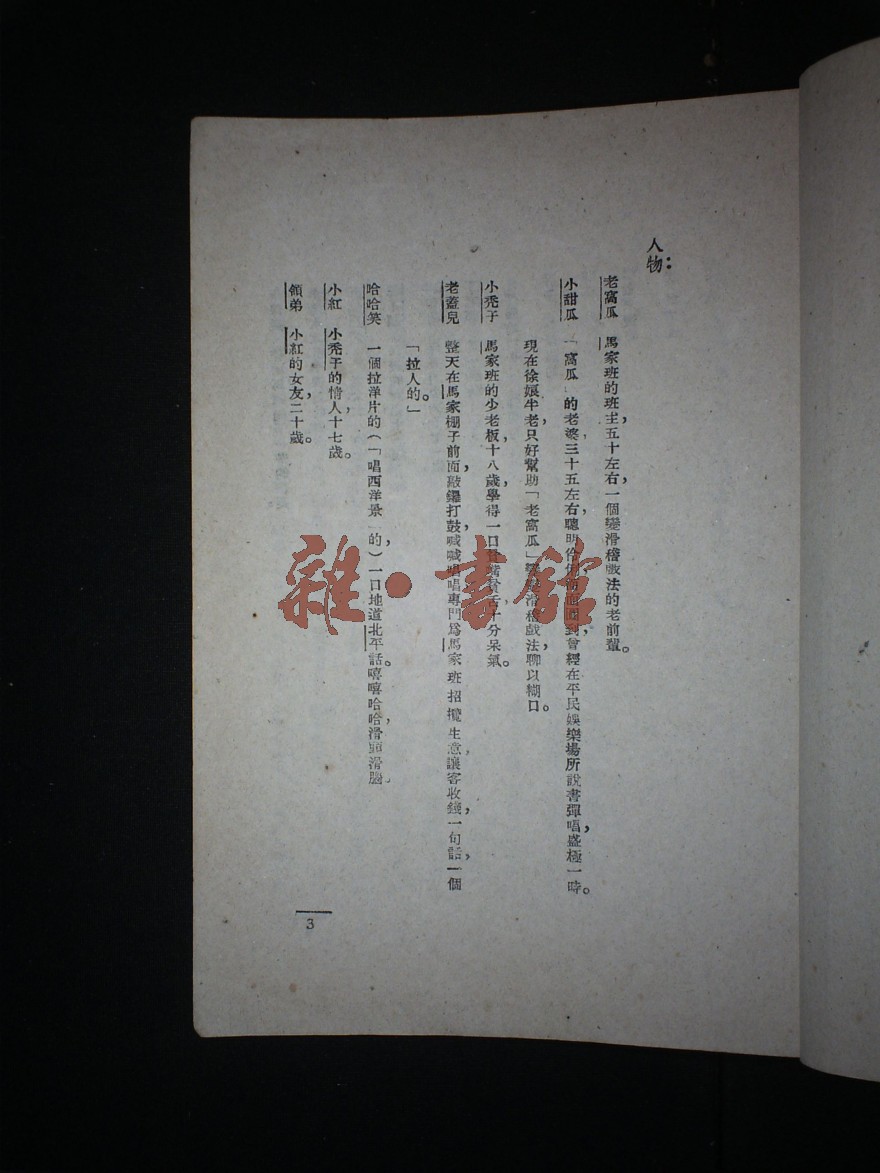 人物：
老窩瓜　馬家班的班主，五十左右，一個變滑稽戲法的老前輩。
小甜瓜　「窩瓜」的老婆三十五左右，聰明伶俐，到曾經在平民娛樂場所說書彈唱，盛極一時。
現在徐娘半老，只好幫助「老窩瓜」變變滑稽戲法，聊以糊口。
小禿子　馬家班的少老板，十八歲，學得一口貧嘴貧舌，十分呆氣。
老蓋兒　整天在馬家棚子前面，敲鑼打鼓，喊喊唱唱，專門爲馬家班招攬生意，讓客收錢，一句話，一個
「拉人的。」
哈哈笑　一個拉洋片的（「唱西洋景」的）一口地道北平話。嘻嘻哈哈，滑頭滑腦。
小紅　小禿子的情人，十七歲。
領弟　小紅的女友，二十歲。
3
雜·書館